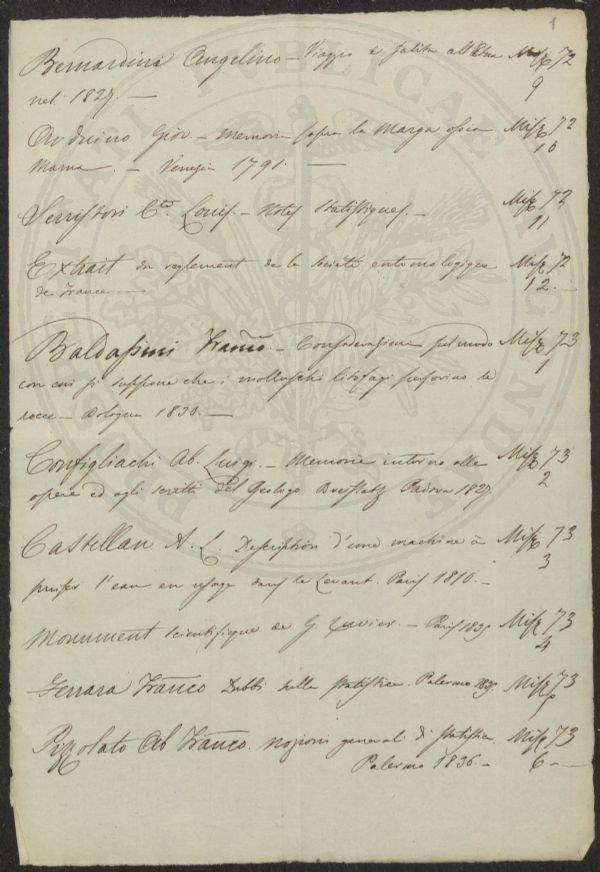 1
Bernardini Angelino – Viaggio e salita all'Etna Misz 72
nel 1827. — 9
Arduino Giov. – Memoria sopra la Marga ossia Misz 72
Marna. – Venezia 1791. — 10
Serristori Cte. Louis. – Notes statistiques. – Misz 72
11
Extrait du reglement de la Société entomologique Misz 72
de France — 12. –
Baldassini Franco. – Considerazioni sul modo Misz 73
con cui si suppone che i molluschi litofagi perforino le 1
rocce – Bologna 1830. —
Configliachi Ab. Luigi. – Memorie intorno alle Misz 73
opere ed agli scritti del Geologo Breislatz Padova 1827. 2
Castellan A. L. Description d'une machine à Misz 73
puiser l'eau en usage dans le Levant. Paris 1810. – 3
Monument scientifique de G. Cuvier. – Paris Misz 73
4
Ferrara Franco Dubbi sulla statistica. Palermo Misz 73
Pizzolato Ab Franco. Nozioni generali di statistica. Misz 73
Palermo 1836. – 6 –
PUBLICAE